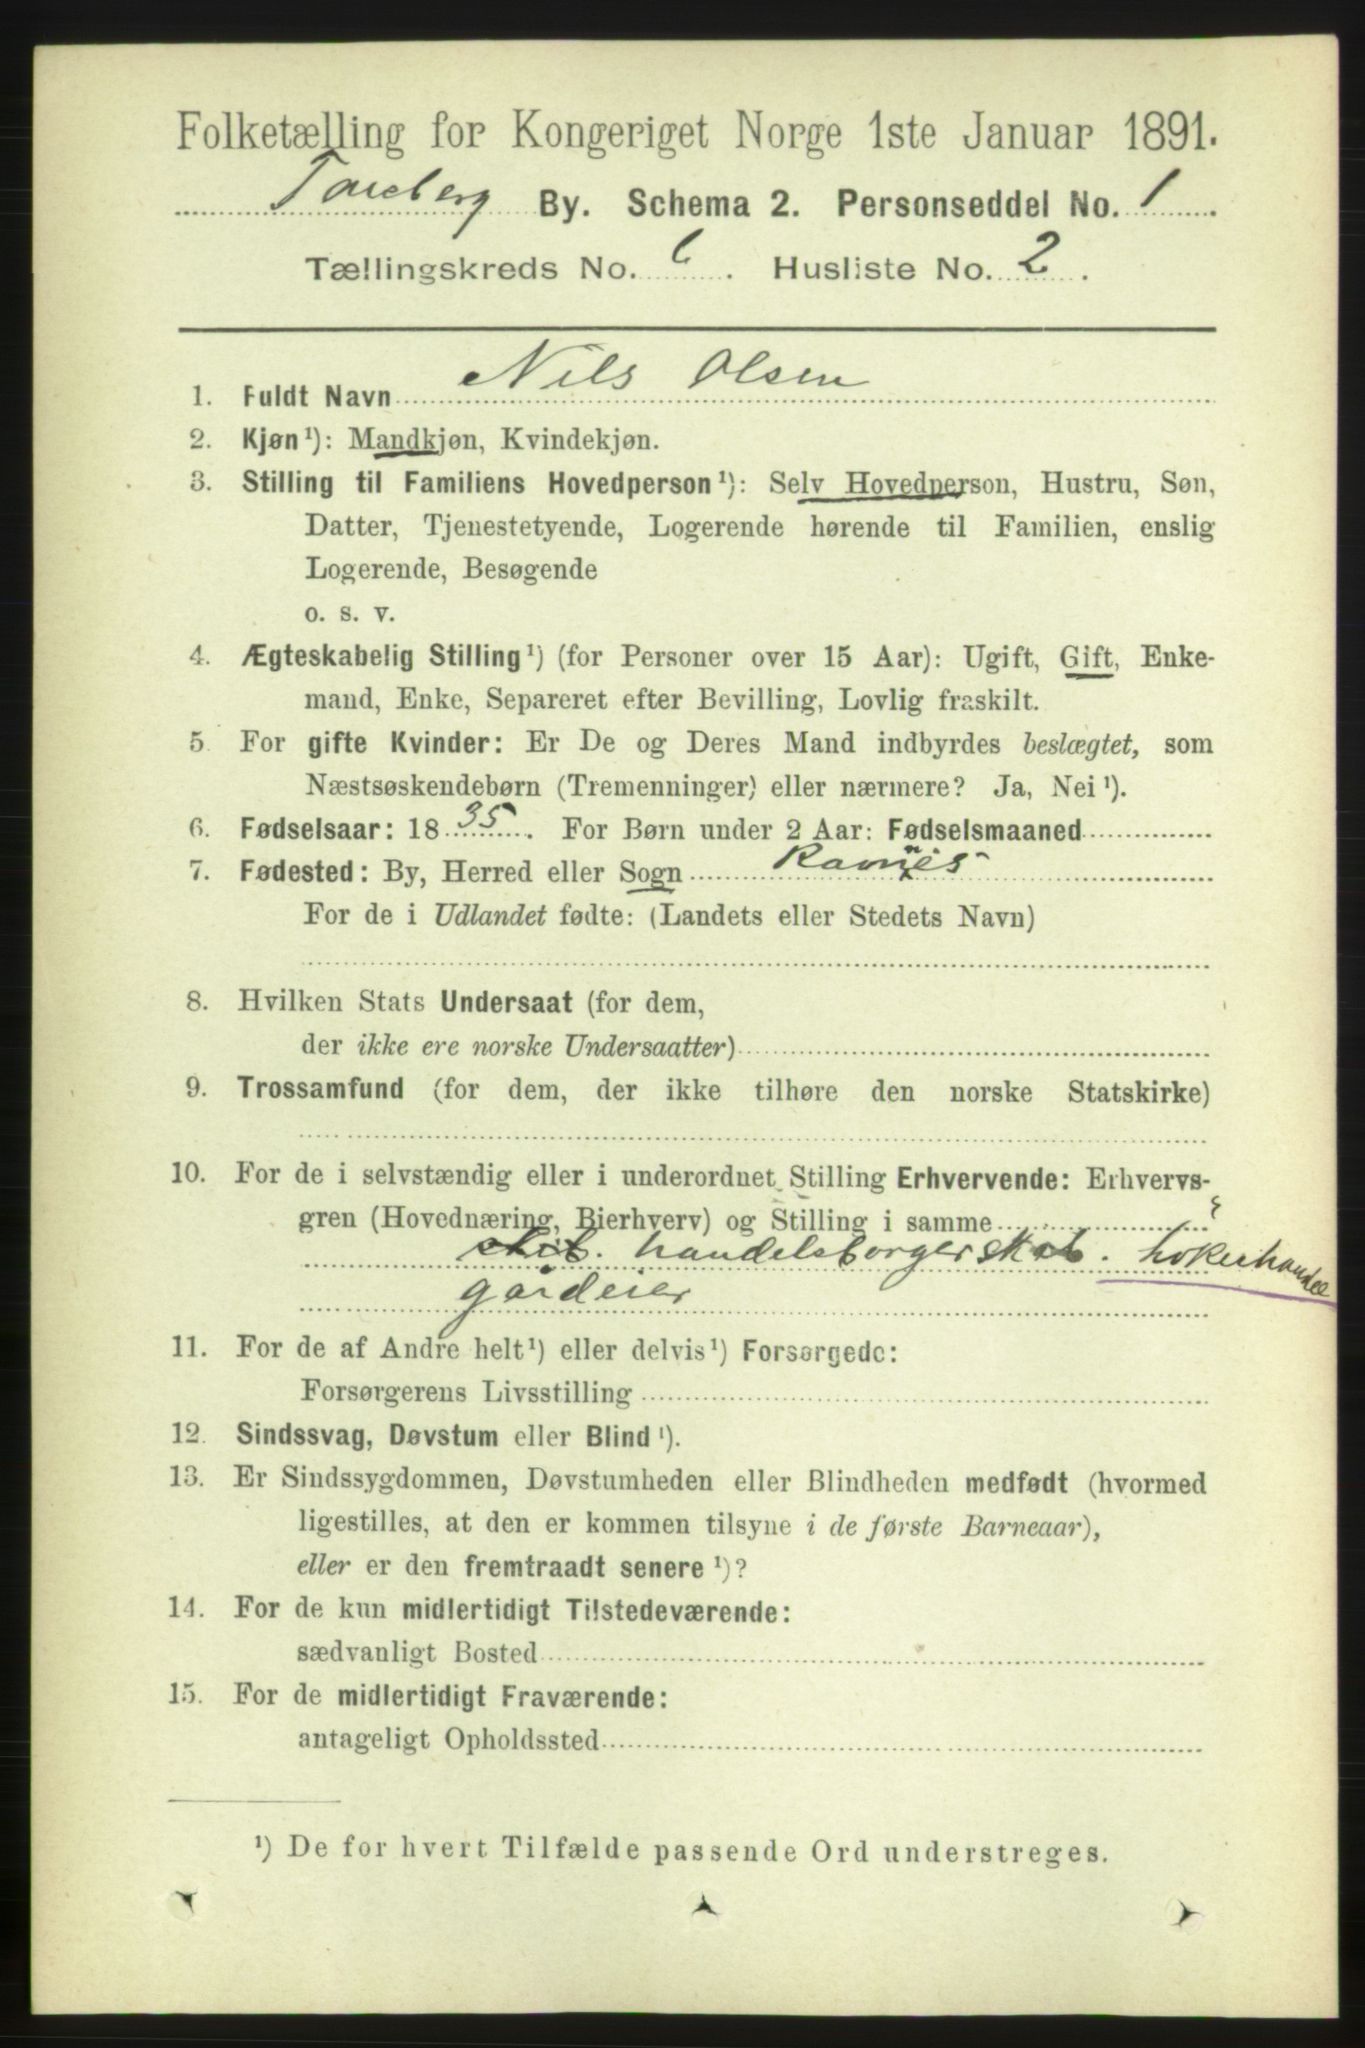 Folketælling for Kongeriget Norge 1ste Januar 1891.
By. Schema 2. Personseddel No. 1.
Tællingskreds No. 6. Husliste No. 2.
1. Fuldt Navn Nils Olsen
2. Kjøn ¹): Mandkjøn, Kvindekjøn.
3. Stilling til Familiens Hovedperson ¹): Selv Hovedperson, Hustru, Søn,
Datter, Tjenestetyende, Logerende hørende til Familien, enslig
Logerende, Besøgende
o. s. v.
4. Ægteskabelig Stilling ¹) (for Personer over 15 Aar): Ugift, Gift, Enke-
mand, Enke, Separeret efter Bevilling, Lovlig fraskilt.
5. For gifte Kvinder: Er De og Deres Mand indbyrdes beslægtet, som
Næstsøskendebørn (Tremenninger) eller nærmere? Ja, Nei ¹).
6. Fødselsaar: 1835. For Børn under 2 Aar: Fødselsmaaned
7. Fødested: By, Herred eller Sogn Ramnes
For de i Udlandet fødte: (Landets eller Stedets Navn)
8. Hvilken Stats Undersaat (for dem,
der ikke ere norske Undersaatter)
9. Trossamfund (for dem, der ikke tilhøre den norske Statskirke)
10. For de i selvstændig eller i underordnet Stilling Erhvervende: Erhvervs-
gren (Hovednæring, Bierhverv) og Stilling i samme
handelsborgerskab. hökerhandel
gårdeier
11. For de af Andre helt ¹) eller delvis ¹) Forsørgede:
Forsørgerens Livsstilling
12. Sindssvag, Døvstum eller Blind ¹).
13. Er Sindssygdommen, Døvstumheden eller Blindheden medfødt (hvormed
ligestilles, at den er kommen tilsyne i de første Barneaar),
eller er den fremtraadt senere ¹)?
14. For de kun midlertidigt Tilstedeværende:
sædvanligt Bosted
15. For de midlertidigt Fraværende:
antageligt Opholdssted
¹) De for hvert Tilfælde passende Ord understreges.